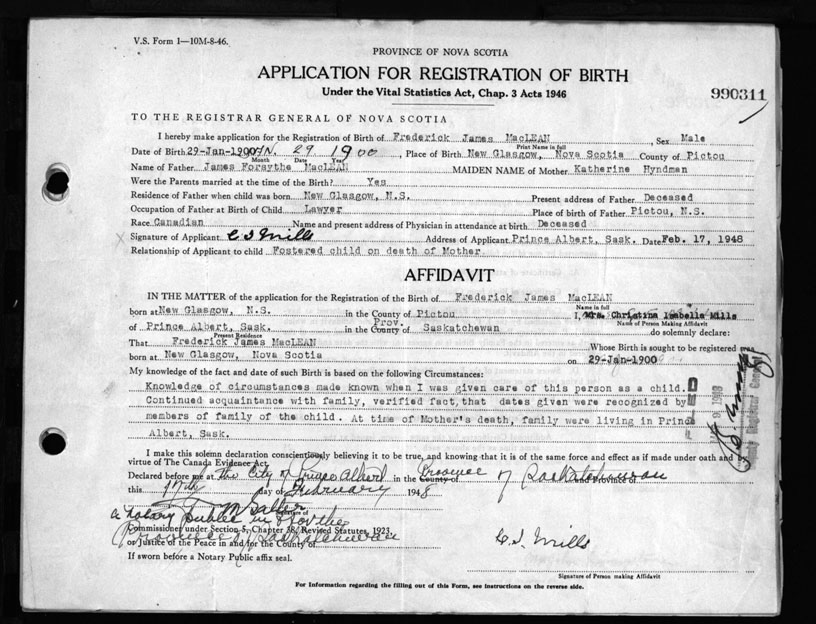 V.S. Form 1—10M-8-46.
PROVINCE OF NOVA SCOTIA
APPLICATION FOR REGISTRATION OF BIRTH
Under the Vital Statistics Act, Chap. 3 Acts 1946
990311
TO THE REGISTRAR GENERAL OF NOVA SCOTIA
I hereby make application for the Registration of Birth of Frederick James MacLEAN, Sex Male
Print Name in full
Date of Birth 29-Jan-1900 JAN. 29 1900, Place of Birth New Glasgow, Nova Scotia County of Pictou
Month Date Year
Name of Father James Forsythe MacLEAN MAIDEN NAME of Mother Katherine Hyndman
Were the Parents married at the time of the Birth? Yes
Residence of Father when child was born New Glasgow, N.S. Present address of Father Deceased
Occupation of Father at Birth of Child Lawyer Place of birth of Father Pictou, N.S.
Race Canadian Name and present address of Physician in attendance at birth Deceased
X Signature of Applicant C S Mills Address of Applicant Prince Albert, Sask. Date Feb. 17, 1948
Relationship of Applicant to child Fostered child on death of Mother
AFFIDAVIT
IN THE MATTER of the application for the Registration of Birth of Frederick James MacLEAN
Name in full
born at New Glasgow, N.S. in the County of Pictou I, Mrs. Christina Isabella Mills
Name of Person Making Affidavit
of Prince Albert, Sask. in the County of Prov. Saskatchewan do solemnly declare:
Present Residence
That Frederick James MacLEAN Whose Birth is sought to be registered
born at New Glasgow, Nova Scotia on 29-Jan-1900
My knowledge of the fact and date of such Birth is based on the following Circumstances:
Knowledge of circumstances made known when I was given care of this person as a child.
Continued acquaintance with family, verified fact, that dates given were recognized by
members of family of the child. At time of Mother's death, family were living in Prince
Albert, Sask.
FILED
1948
I make this solemn declaration conscientiously believing it to be true, and knowing that it is of the same force and effect as if made under oath and by
virtue of The Canada Evidence Act.
Declared before me at the City of Prince Albert in the County of Province of Saskatchewan and Province of
this 17th day of February 1948
Signature of
a notary public in & for the
Commissioned under Section 5, Chapter 18, Revised Statutes, 1923
Province of Saskatchewan
or Justice of the Peace in and for the County of
If sworn before a Notary Public affix seal.
C. S. Mills
Signature of Person making Affidavit
For Information regarding the filling out of this Form, see instructions on the reverse side.